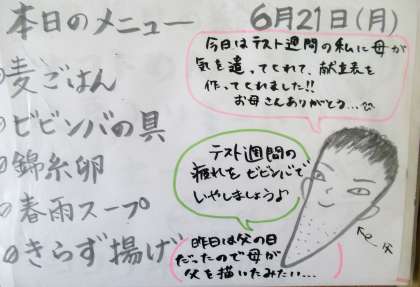 本日のメニュー 6月21日(月)
麦ごはん
ビビンバの具
錦糸卵
春雨スープ
きらず揚げ
今日はテスト週間の私に母が
気を遣ってくれて、献立表を
作ってくれました!!
お母さんありがとう…
テスト週間の
疲れをビビンバで
いやしましょうよ
昨日は父の日
だったので母が
父を描いたみたい…